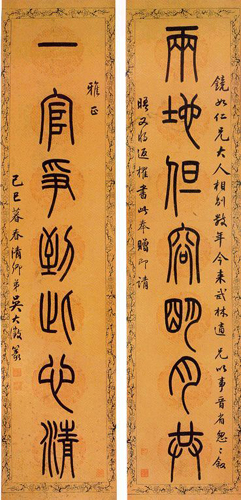 饒如仁兄大人相別數年今來武林適兄以事晉省怱怱敘
晤又將返櫂書此奉贈即請
兩地但容明月共
雅正
一官爭到此心清
己巳暮春清卿弟吳大澂篆